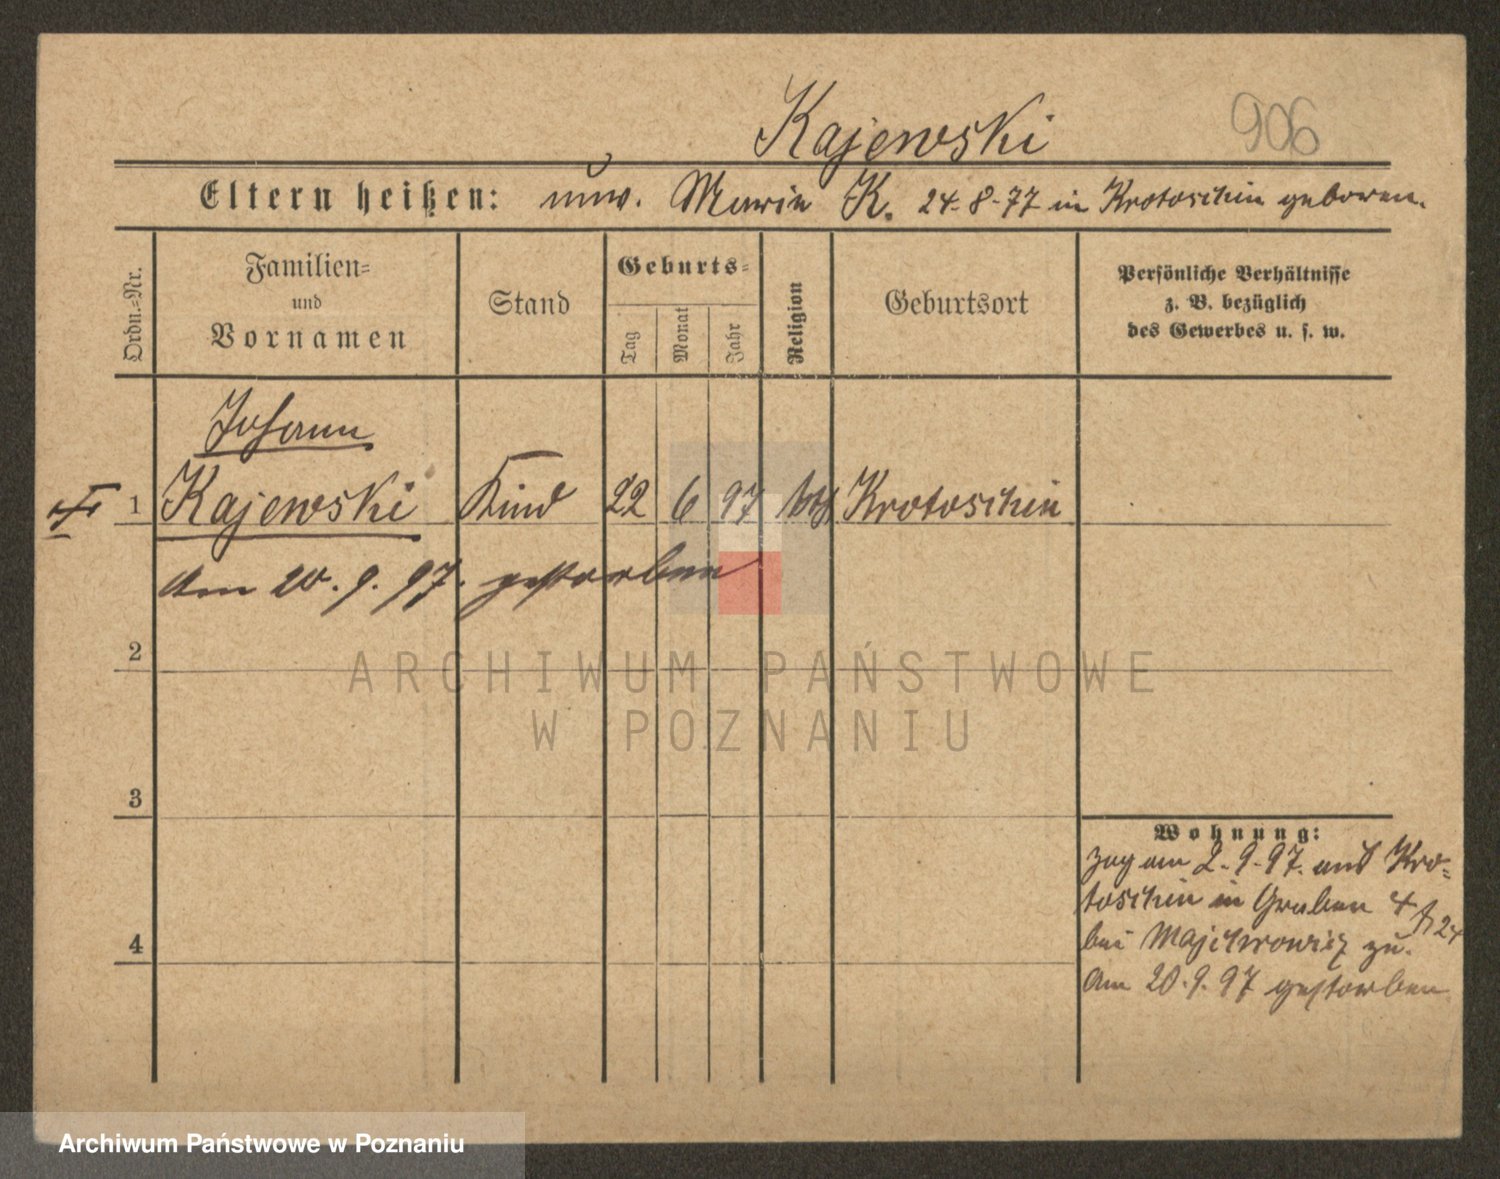 Kajewski 906
Eltern heißen: unv. Marie K. 24-8-77 in Krotoschin geboren.
Ordn.-Nr.
Familien-
und
Vornamen
Stand
Geburts-
Tag
Monat
Jahr
Religion
Geburtsort
Persönliche Verhältnisse
z. B. bezüglich
des Gewerbes u. s. w.
Johann
1 Kajewski Kind 22 6 97 kth Krotoschin
Am 20.9.97. gestorben
2
3
4
Wohnung:
zog am 2.9.97. aus Kro-
toschin in Graben 4
bei Majchrowicz zu.
Am 20.9.97 gestorben
ARCHIWUM PAŃSTWOWE
W POZNANIU
Archiwum Państwowe w Poznaniu